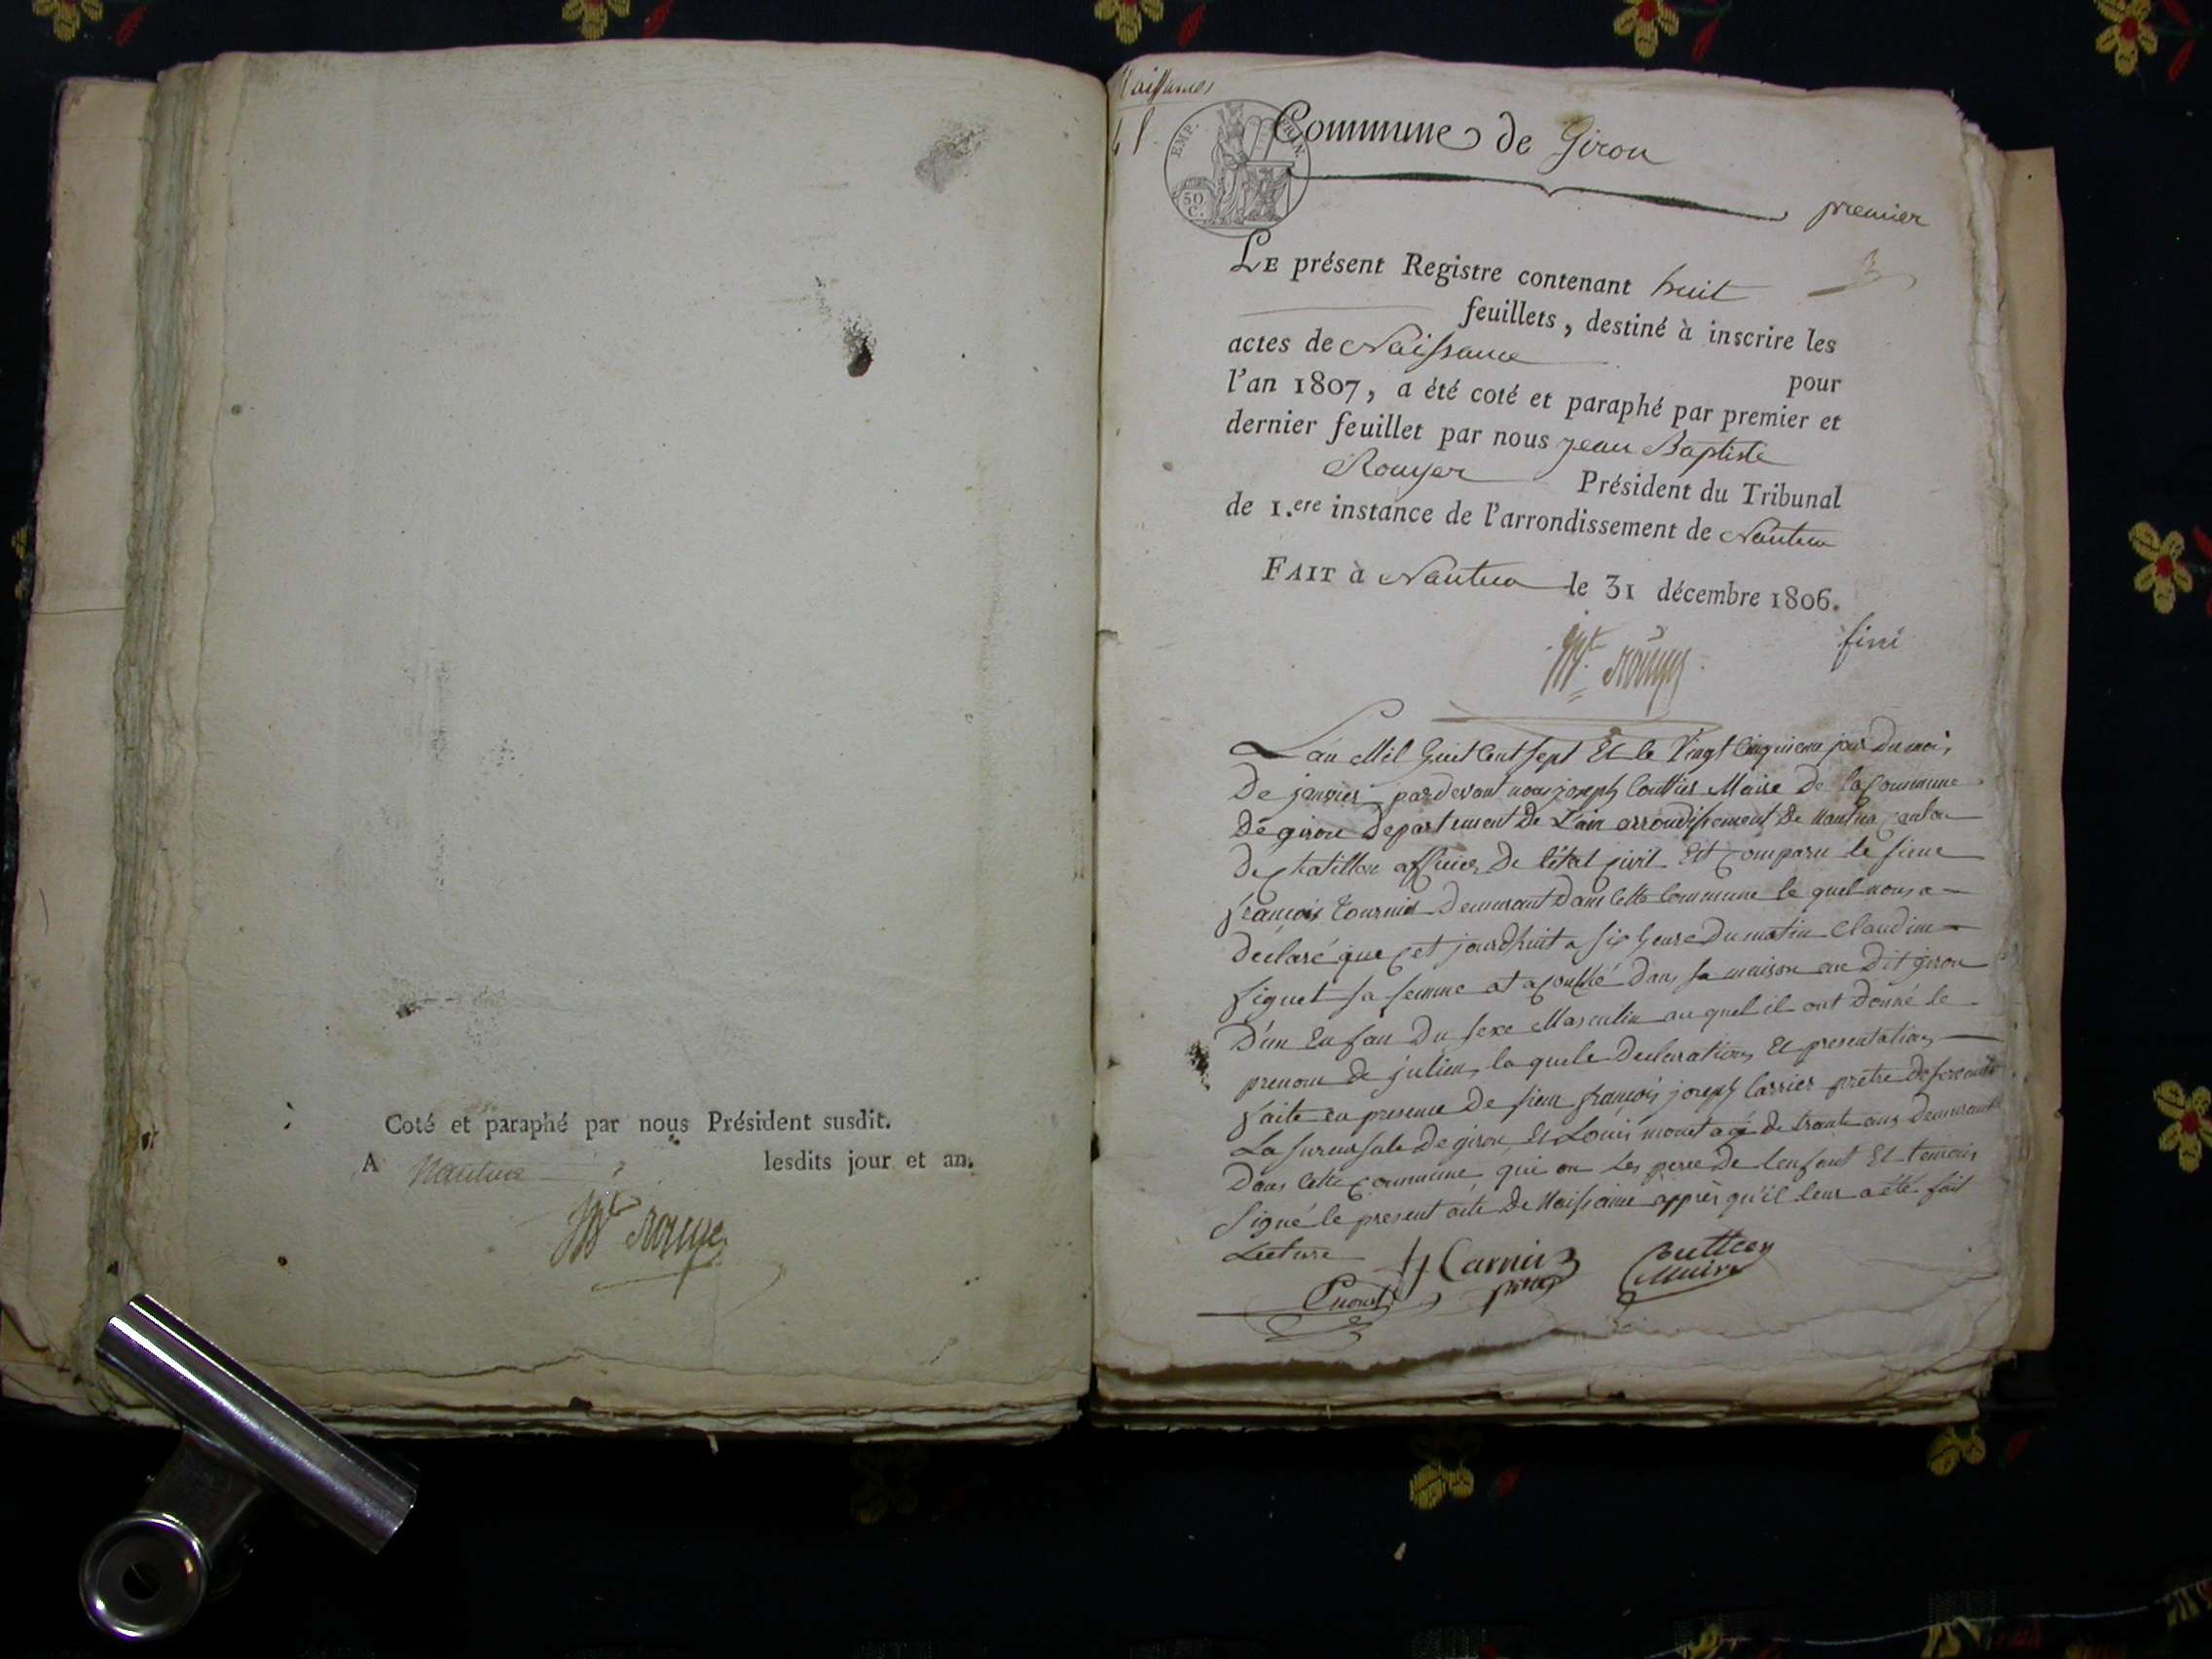 Coté et paraphé par nous Président susdit.
A Nantua lesdits jour et an.
Naissances
EMP. FRAN.
50 C.
Commune de Giron
premier
3
LE présent Registre contenant huit
feuillets, destiné à inscrire les
actes de Naissance pour
l'an 1807, a été coté et paraphé par premier et
dernier feuillet par nous jean Baptiste
Rouyer Président du Tribunal
de 1.ere instance de l'arrondissement de Nantua
FAIT à Nantua le 31 décembre 1806.
fini
L'an Mil huit Cent sept Et le Vingt Cinquieme jour du mois
De janvier par devant nous joseph Couttier Maire De la Commune
De giron Departement De L'ain arrondissement De Nantua canton
De chatillon officier De l'état civil Est comparu le sieur
françois tournier Demeurant Dans Cette Commune le quel nous a
Declaré que cet jourdhuit a six heure Du matin Claudine
figuet sa femme at acouché Dans sa maison au Dit giron
D'un Enfan Du sexe Masculin au quel il ont Donné le
prenom De julien, la quele Declaration Et presentation
faite en presence De sieur françois joseph Carrier prêtre Deservant
La sucursale De giron Et Louis monet agé De trante ans Demeurant
Dans Cette Commune qui on Les pere De lenfant Et temoins
Signé le present acte De Naissance apprès qu'il leur a été fait
Lecture
Carrier
prêtre
Couttier
Maire